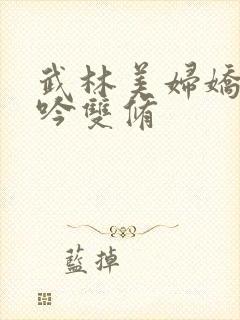 武林美婦嬌
吟雙脩
藍掉